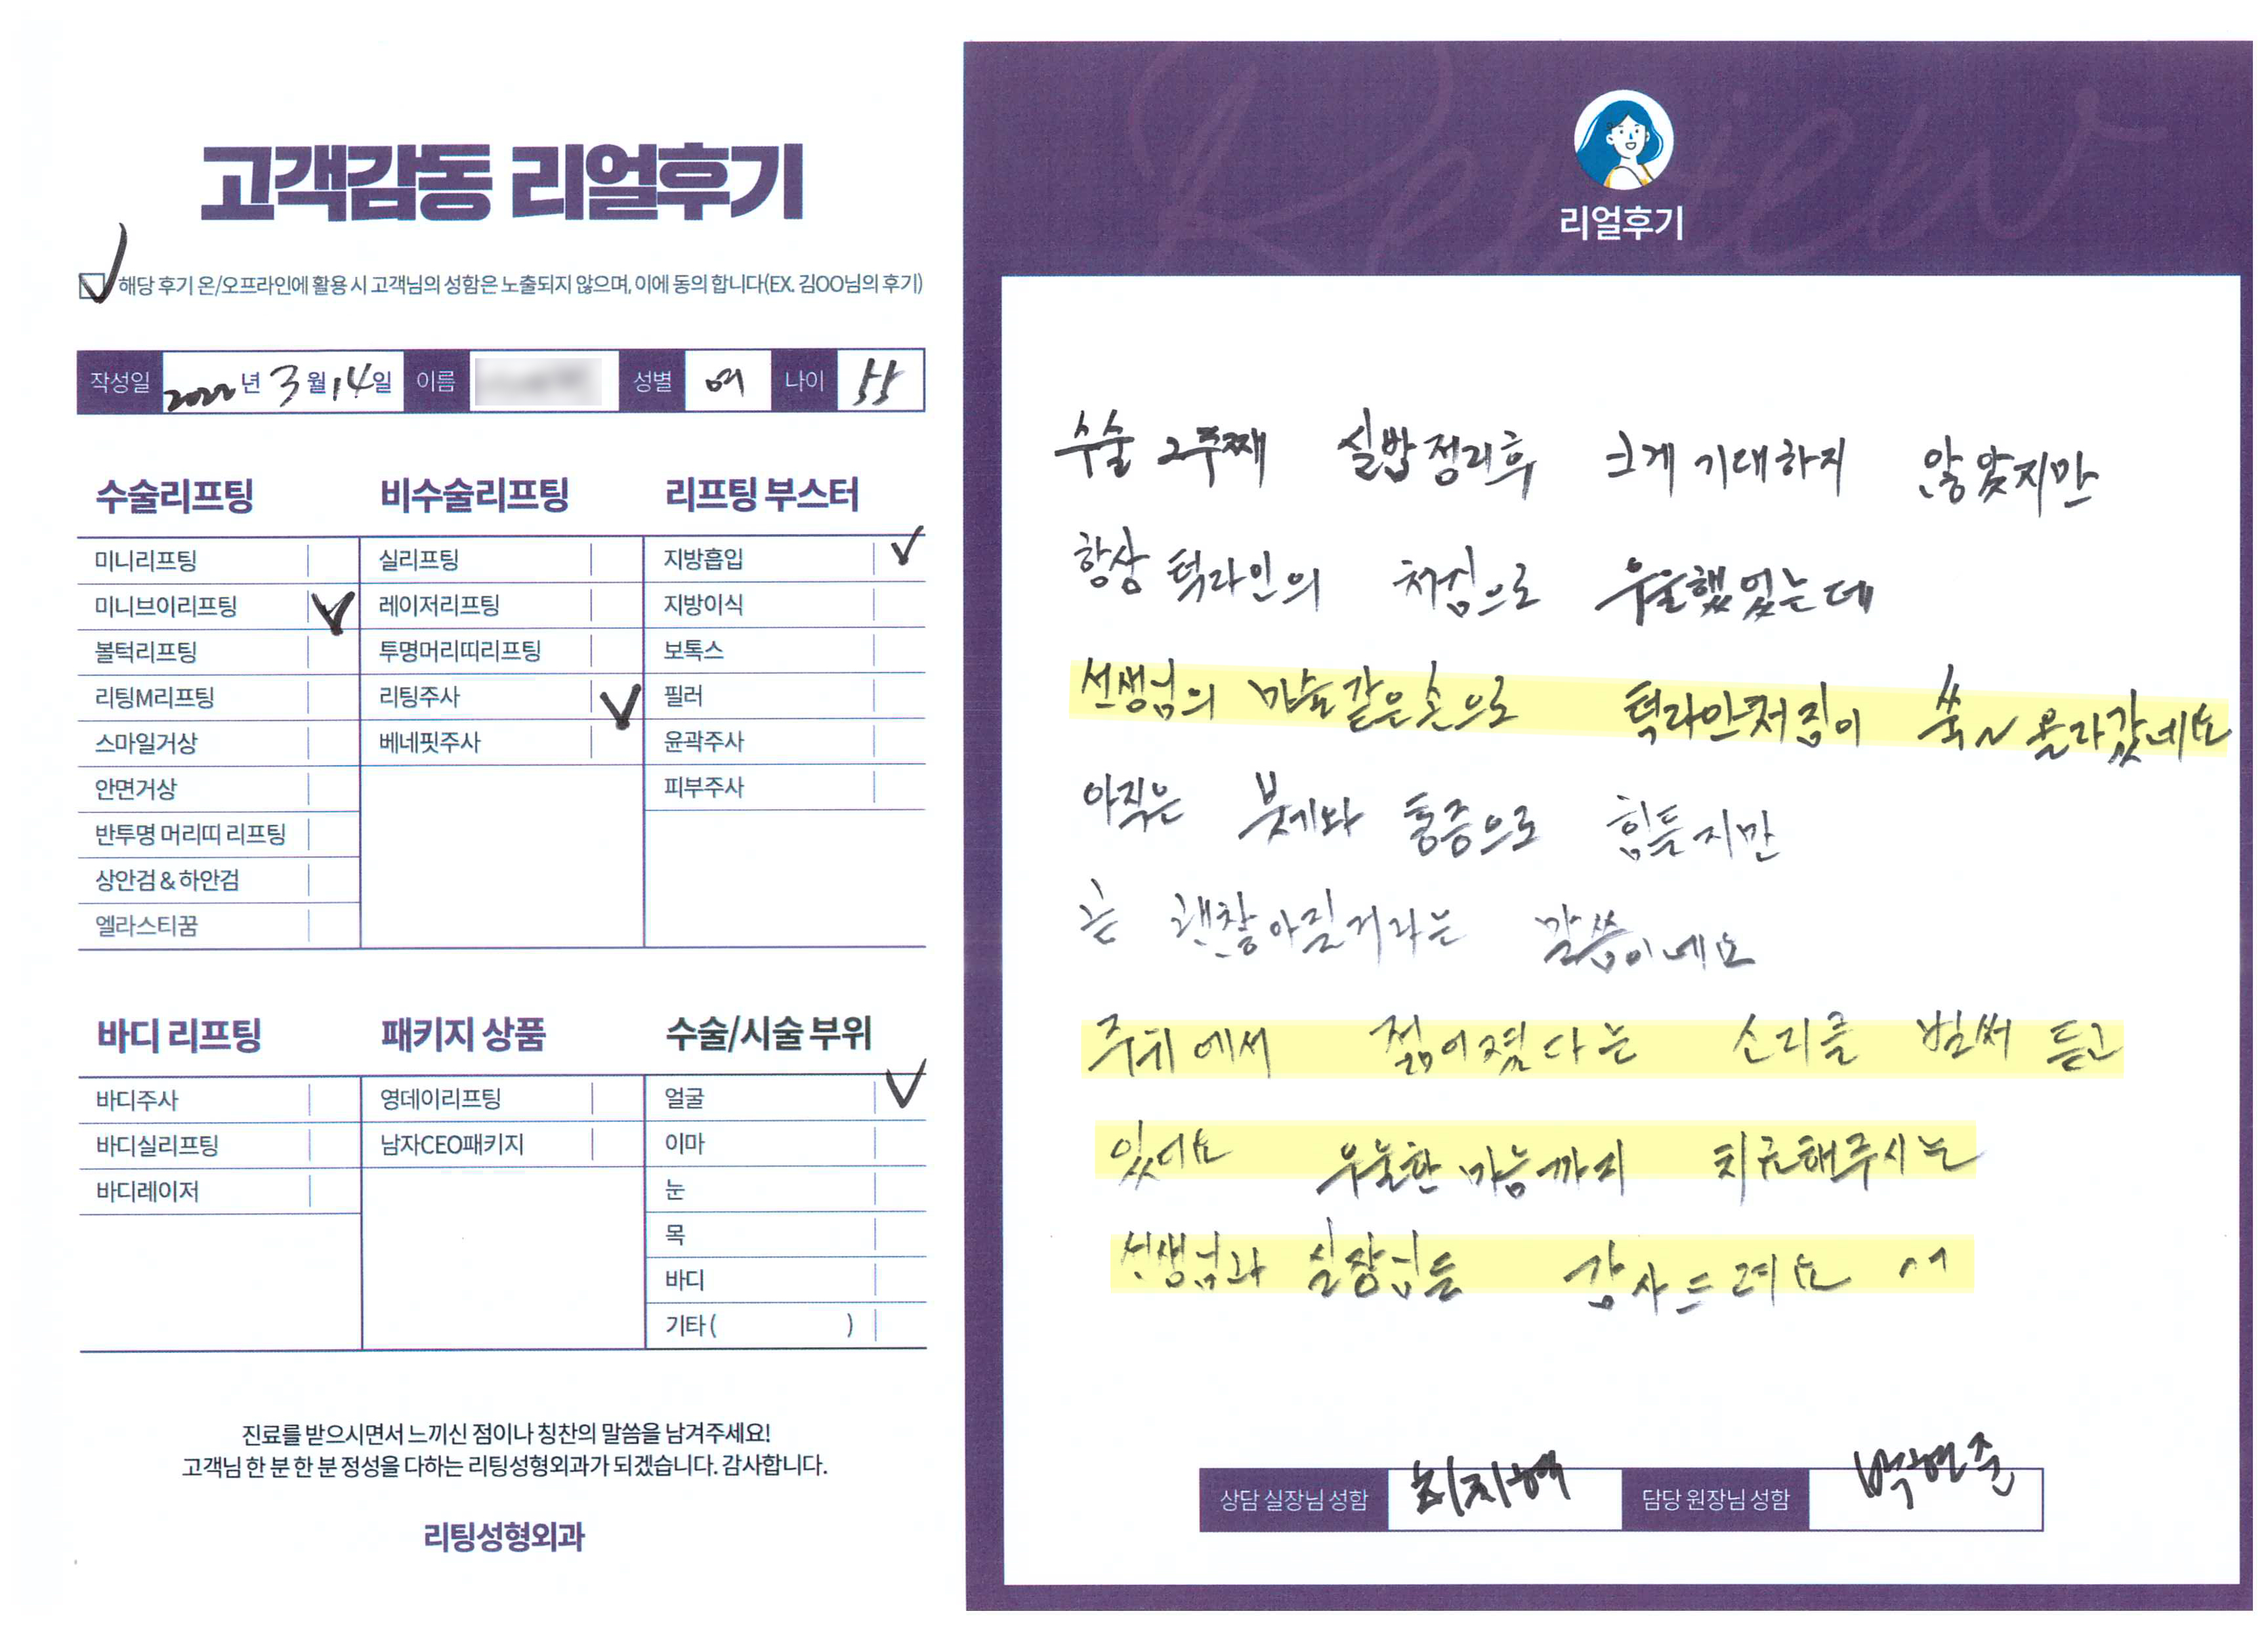 고객감동 리얼후기
해당 후기 온/오프라인에 활용 시 고객님의 성함은 노출되지 않으며, 이에 동의 합니다(EX. 김OO님의 후기)
작성일 2022년 3월 14일 이름 성별 여 나이 55
수술리프팅 비수술리프팅 리프팅 부스터
미니리프팅 실리프팅 지방흡입
미니브이리프팅 레이저리프팅 지방이식
볼턱리프팅 투명머리띠리프팅 보톡스
리팅M리프팅 리팅주사 필러
스마일거상 베네핏주사 윤곽주사
안면거상 피부주사
반투명 머리띠 리프팅
상안검 & 하안검
엘라스티꿈
바디 리프팅 패키지 상품 수술/시술 부위
바디주사 영데이리프팅 얼굴
바디실리프팅 남자CEO패키지 이마
바디레이저 눈
목
바디
기타 ( )
진료를 받으시면서 느끼신 점이나 칭찬의 말씀을 남겨주세요!
고객님 한 분 한 분 정성을 다하는 리팅성형외과가 되겠습니다. 감사합니다.
리팅성형외과
Review
리얼후기
수술 2주째 실밥정리후 크게 기대하지 않았지만
항상 턱라인의 처짐으로 우울했었는데
선생님의 마술같은손으로 턱라인처짐이 쑥~ 올라갔네요
아직은 붓기와 통증으로 힘들지만
곧 괜찮아질거라는 말씀이네요
주위에서 젊어졌다는 소리를 벌써 듣고
있네요 우울한 마음까지 치료해주시는
선생님과 실장님들 감사드려요 ^^
상담 실장님 성함 최지혜 담당 원장님 성함 박현준